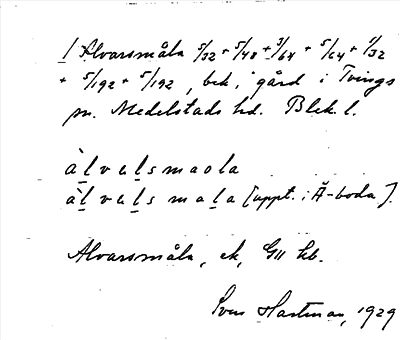 1 Alvarsmåla 5/32 + 5/48 + 3/64 + 5/64 + 1/32
+ 5/192 + 5/192, bek, gård i Tvings
sn. Medelstads hd. Blek. l.
àlvalsmaola
àlvalsmala [uppt. i Ä-boda].
Alvarsmåla, ek, GII kb.
Sven Hartman, 1929